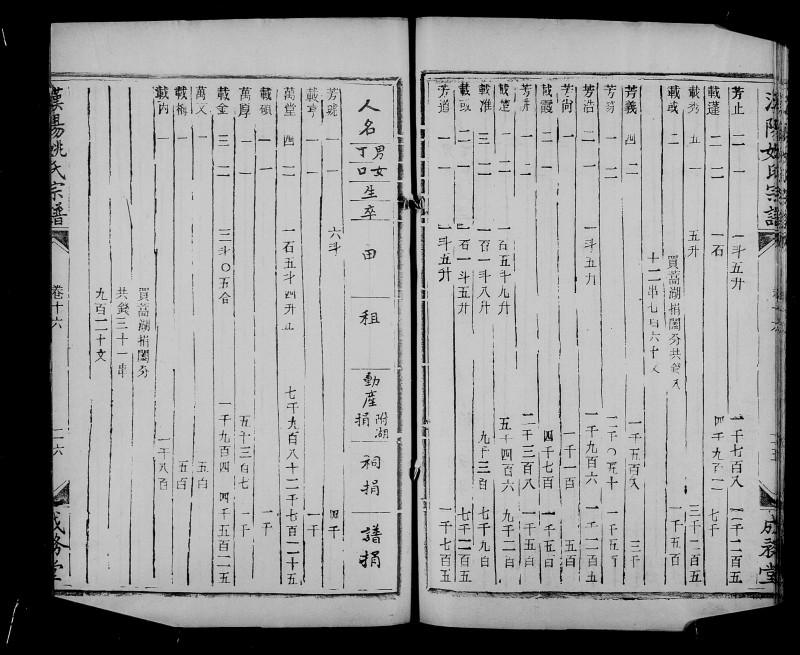 漢陽姚氏宗譜
芳止 二 一 一斗五升 一千七百八 二千二百五
載蓬 二 二 一石 四千九百二 七千
載秀 五 一 五升 三千二百五
載或 二 一千五百
買蒿湖捐圖分共錢又
十二串七百六十文
芳義 四 二 一千五百八 三千五
芳蒭 一 二 一千〇五十 一千五
芳浩 二 一 一斗五升 一千九百六 一千二百五
芳尚 一 一千一百 五百
載霞 二 二 四千七百 一千五百
芳 一 二 二千三百八 一千五百
載楚 二 一 一石五斗九升 五千四百六 九千二百
載淮 三 二 一石一斗八升 九千三百 七千九百
載或 二 一 一石一斗五升 七千二百五
芳道 一 一 一斗五升 一千七百五
成務堂
人名 男丁 女口 生卒 田租 動產捐 附湖 祠捐 譜捐
芳琥 一 一 六斗 四千
載 一 一 一千
萬堂 四 二 一石五斗四升 七千九百八十二 千七百二十五
載碩 一 一 一千
萬厚 一 二 五千三百七 一千
載金 三 二 三斗〇五合 一千九百四 四千五百二五
萬又 一 五百
載梅 一 五百
載丙 一 一 一千八百
買蒿湖捐圖分
共錢三十一串
九百二十文
漢陽姚氏宗譜
卷十六
二六
成務堂